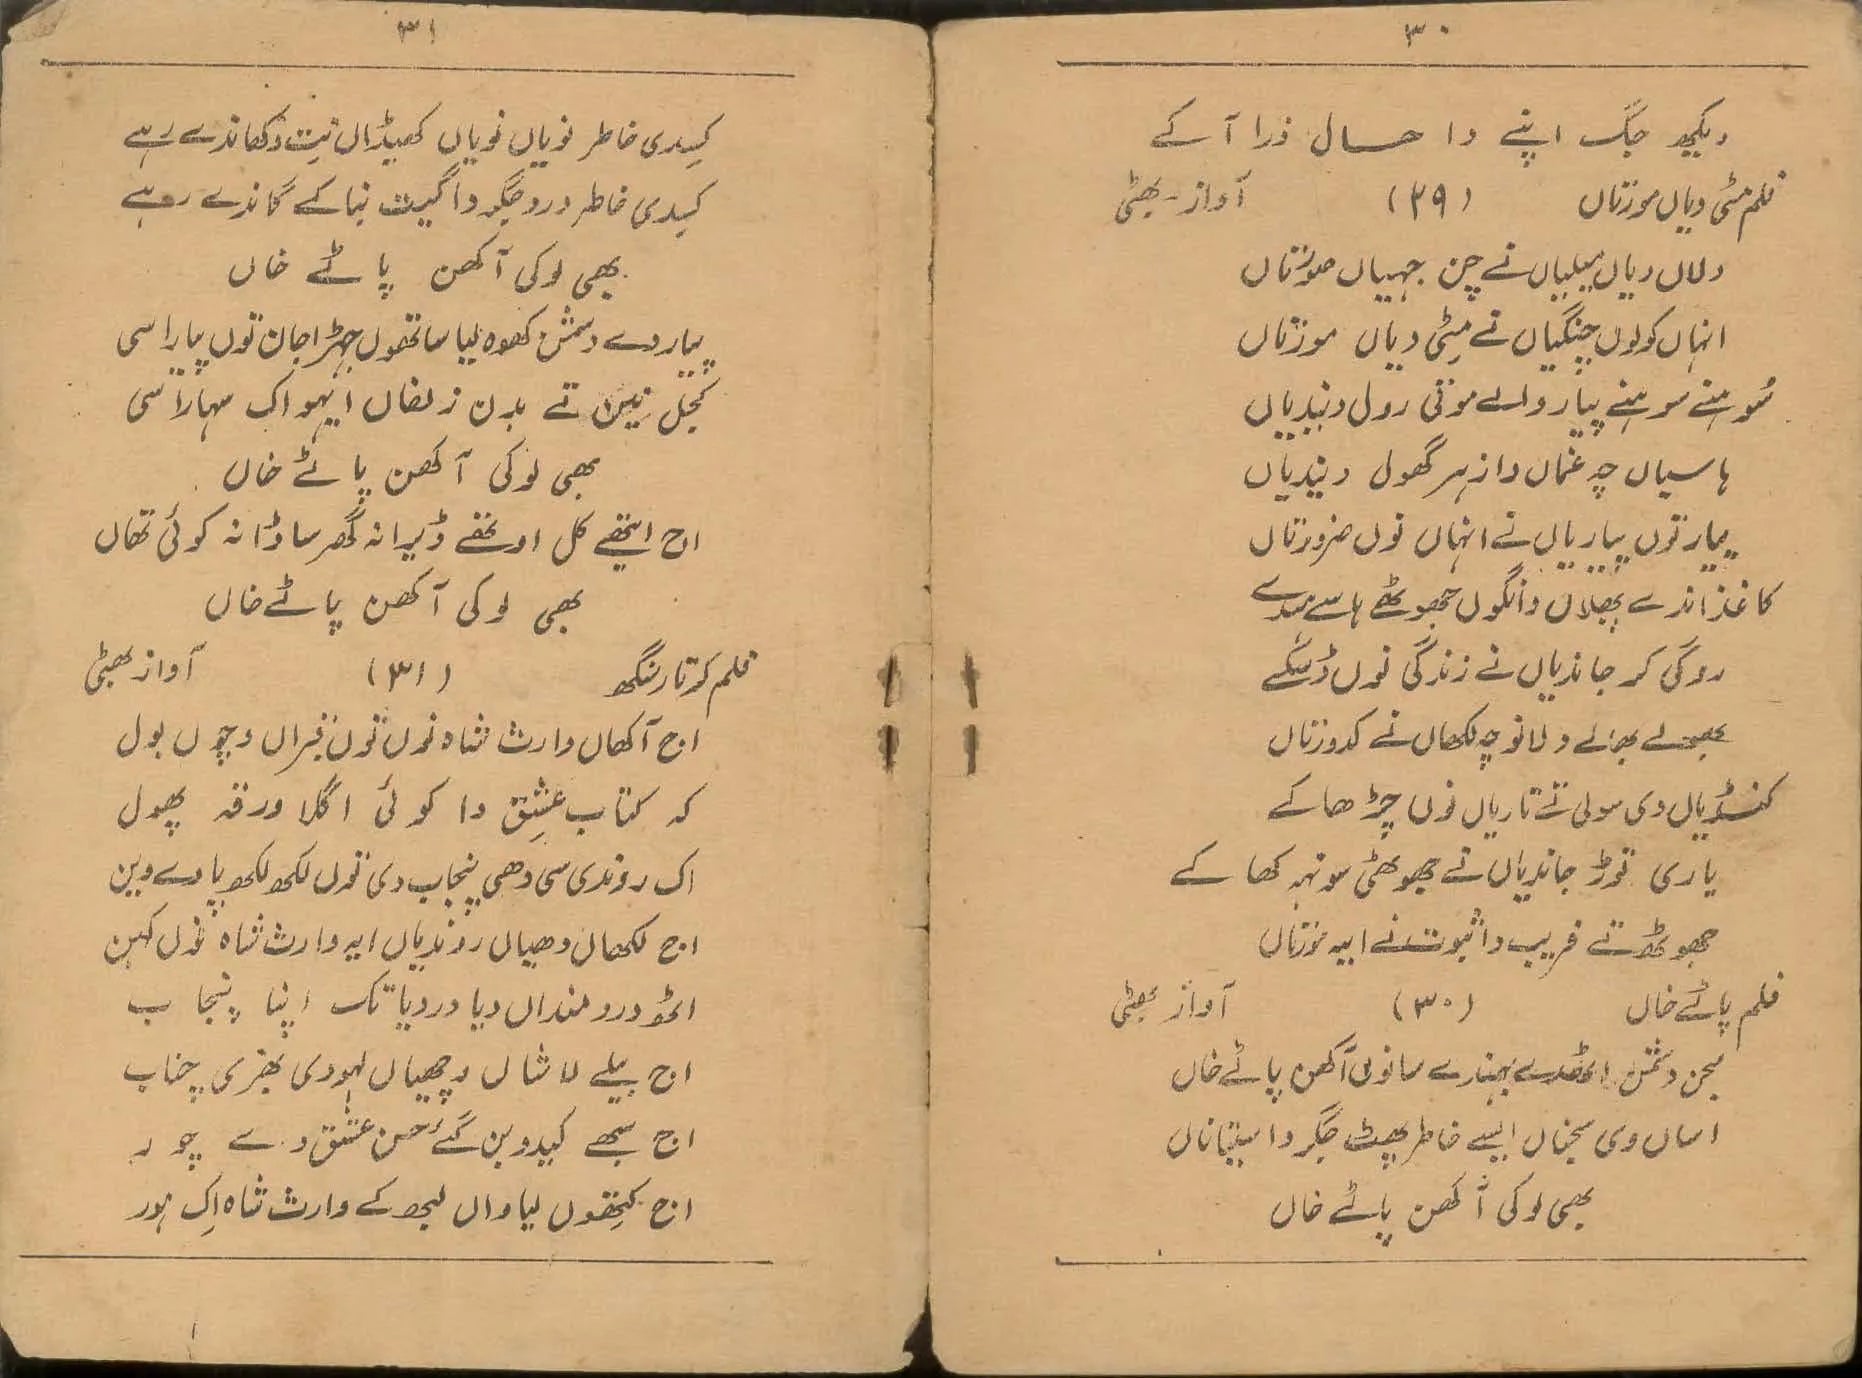 ۳۰
دیکھ جگ اپنے دا حال ذرا آ کے
فلم مٹی دیاں مورتاں (۲۹) آواز - بھٹی
دلاں دیاں میلیاں نے چن جہیاں صورتاں
انہاں کولوں چنگیاں نے مٹی دیاں مورتاں
سوہنے سوہنے پیار والے موتی رول دیندیاں
ہاسیاں چہ غماں دا زہر گھول دیندیاں
پیار توں پیاریاں نے انہاں نوں ضرورتاں
کاغذاندے پھلاں وانگوں جھوٹھے ہاسے ہسدے
روگی کر جاندیاں نے زندگی نوں ڈسکے
بھولے بھالے دلانو چہ لکھاں نے کدورتاں
کنڈیاں دی سولی تے تاریاں نوں چڑھا کے
یاری توڑ جاندیاں نے جھوٹھی سونہہ کھا کے
جھوٹھ تے فریب دا ثبوت نے ایہ عورتاں
فلم پاٹے خاں (۳۰) آواز بھٹی
سجن دشمن اٹھدے بہندے سانوں آکھن پاٹے خاں
اساں وی سجناں ایسے خاطر پھٹ جگر دا سیتا ناں
بھی لوکی آکھن پاٹے خاں
۳۱
کیہدی خاطر نویاں نویاں کھیڈاں نت دکھاندے رہے
کیہدی خاطر درد جگر دا گیت بنا کے گاندے رہے
بھی لوکی آکھن پاٹے خاں
پیار دے دشمن کھوہ لیا ساتھوں جہڑا جان توں پیارا سی
کجل نین تے بدن زلفاں ایہو اک سہارا سی
بھی لوکی آکھن پاٹے خاں
اج ایتھے کل اوتھے ڈیرا نہ گھر ساڈا نہ کوئی تھاں
بھی لوکی آکھن پاٹے خاں
فلم کرتار سنگھ (۳۱) آواز بھٹی
اج آکھاں وارث شاہ نوں توں قبراں وچوں بول
کہ کتاب عشق دا کوئی اگلا ورقہ پھول
اک روندی سی دھی پنجاب دی توں لکھ لکھ پاوے وین
اج لکھاں دھیاں روندیاں ایہ وارث شاہ نوں کہن
اٹھو دردمنداں دیا دردیا تک اپنا پنجاب
اج بیلے لاشاں وچھیاں لہو دی بھری چناب
اج سبھے کیدو بن گئے حسن عشق دے چور
اج کیتھوں لیاواں لبھ کے وارث شاہ اک ہور